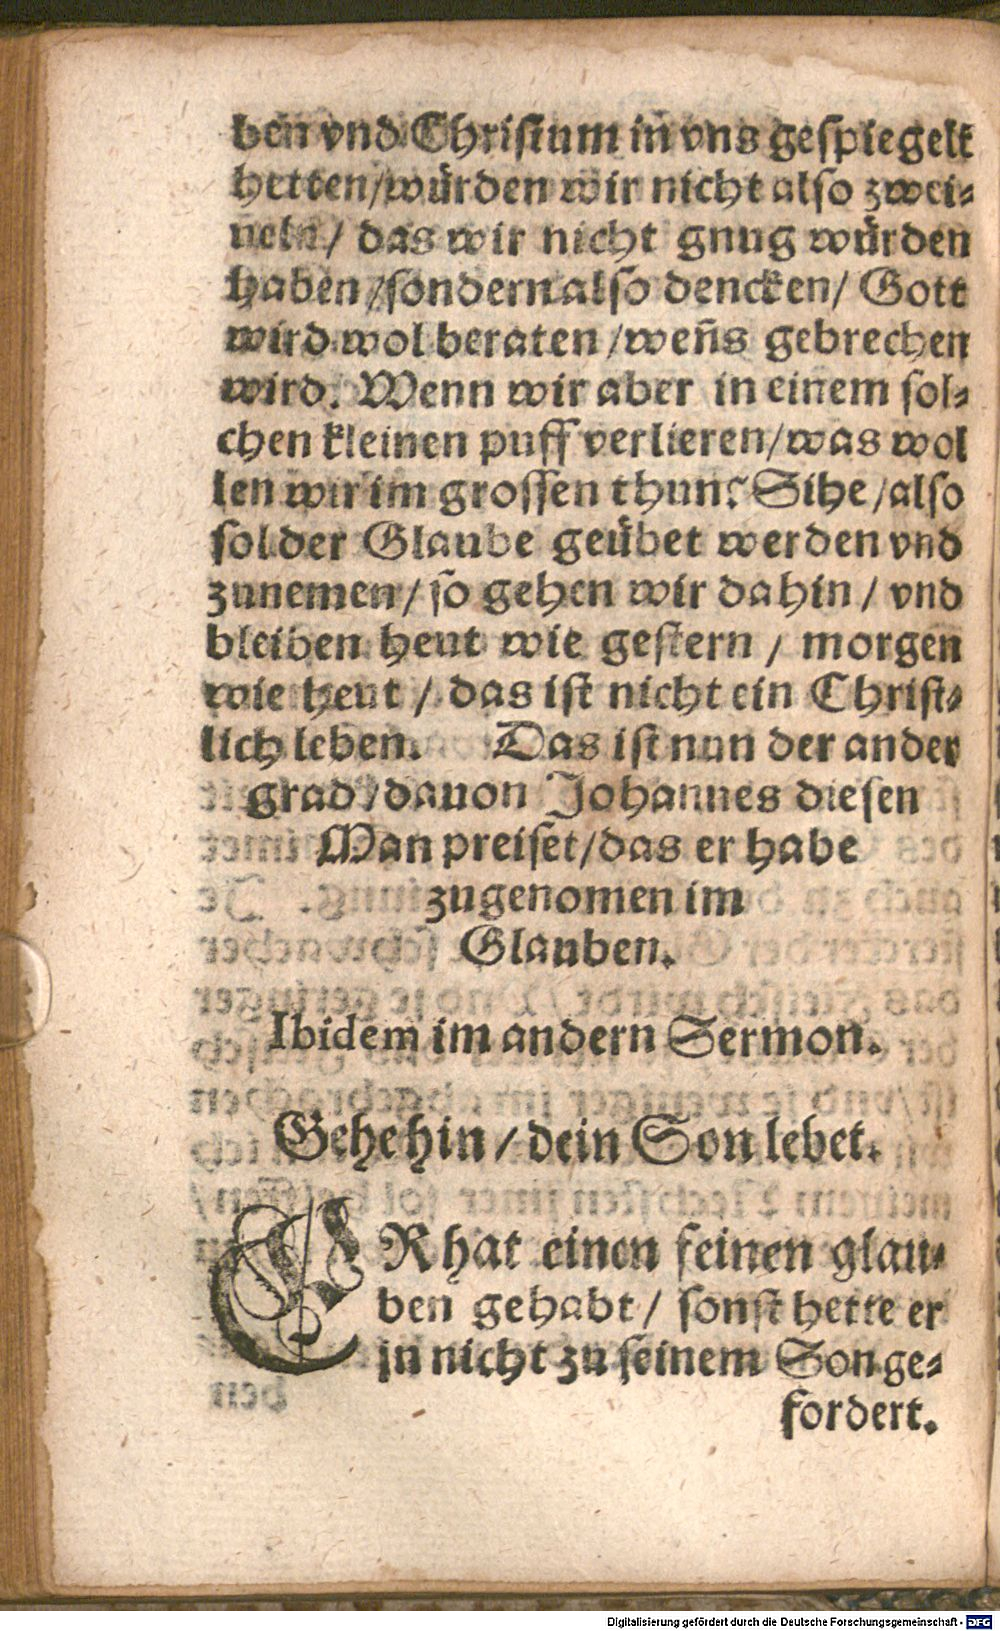 ben vnd Christum in vns gespiegelt
hetten/würden wir nicht also zwei-
ueln/ das wir nicht gnug würden
haben/sondern also dencken/ Gott
wird wol beraten/weñs gebrechen
wird. Wenn wir aber in einem sol-
chen kleinen puff verlieren/was wol
len wir im grossen thun? Sihe/also
sol der Glaube geübet werden vnd
zunemen/ so gehen wir dahin/ vnd
bleiben heut wie gestern/ morgen
wie heut/ das ist nicht ein Christ-
lich leben. Das ist nun der ander
grad/dauon Johannes diesen
Man preiset/das er habe
zugenomen im
Glauben.
Ibidem im andern Sermon.
Gehe hin/ dein Son lebet.
ER hat einen feinen glau-
ben gehabt/ sonst hette er
jn nicht zu seinem Son ge-
fordert.
Digitalisierung gefördert durch die Deutsche Forschungsgemeinschaft - DFG